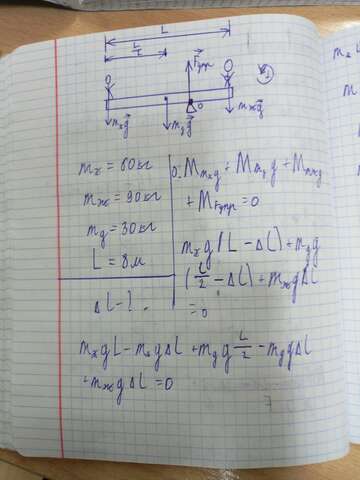 L
L/2
F⃗упр
mхg⃗
mдg⃗
O
mжg⃗
mх = 60 кг
mж = 90 кг
mд = 30 кг
L = 8 м
ΔL - ?
O: Mmхg + Mmдg + Mmжg
+ MFупр = 0
mхg(L - ΔL) + mдg
(L/2 - ΔL) + mжgΔL
= 0
mхgL - mхgΔL + mдg L/2 - mдgΔL
+ mжgΔL = 0